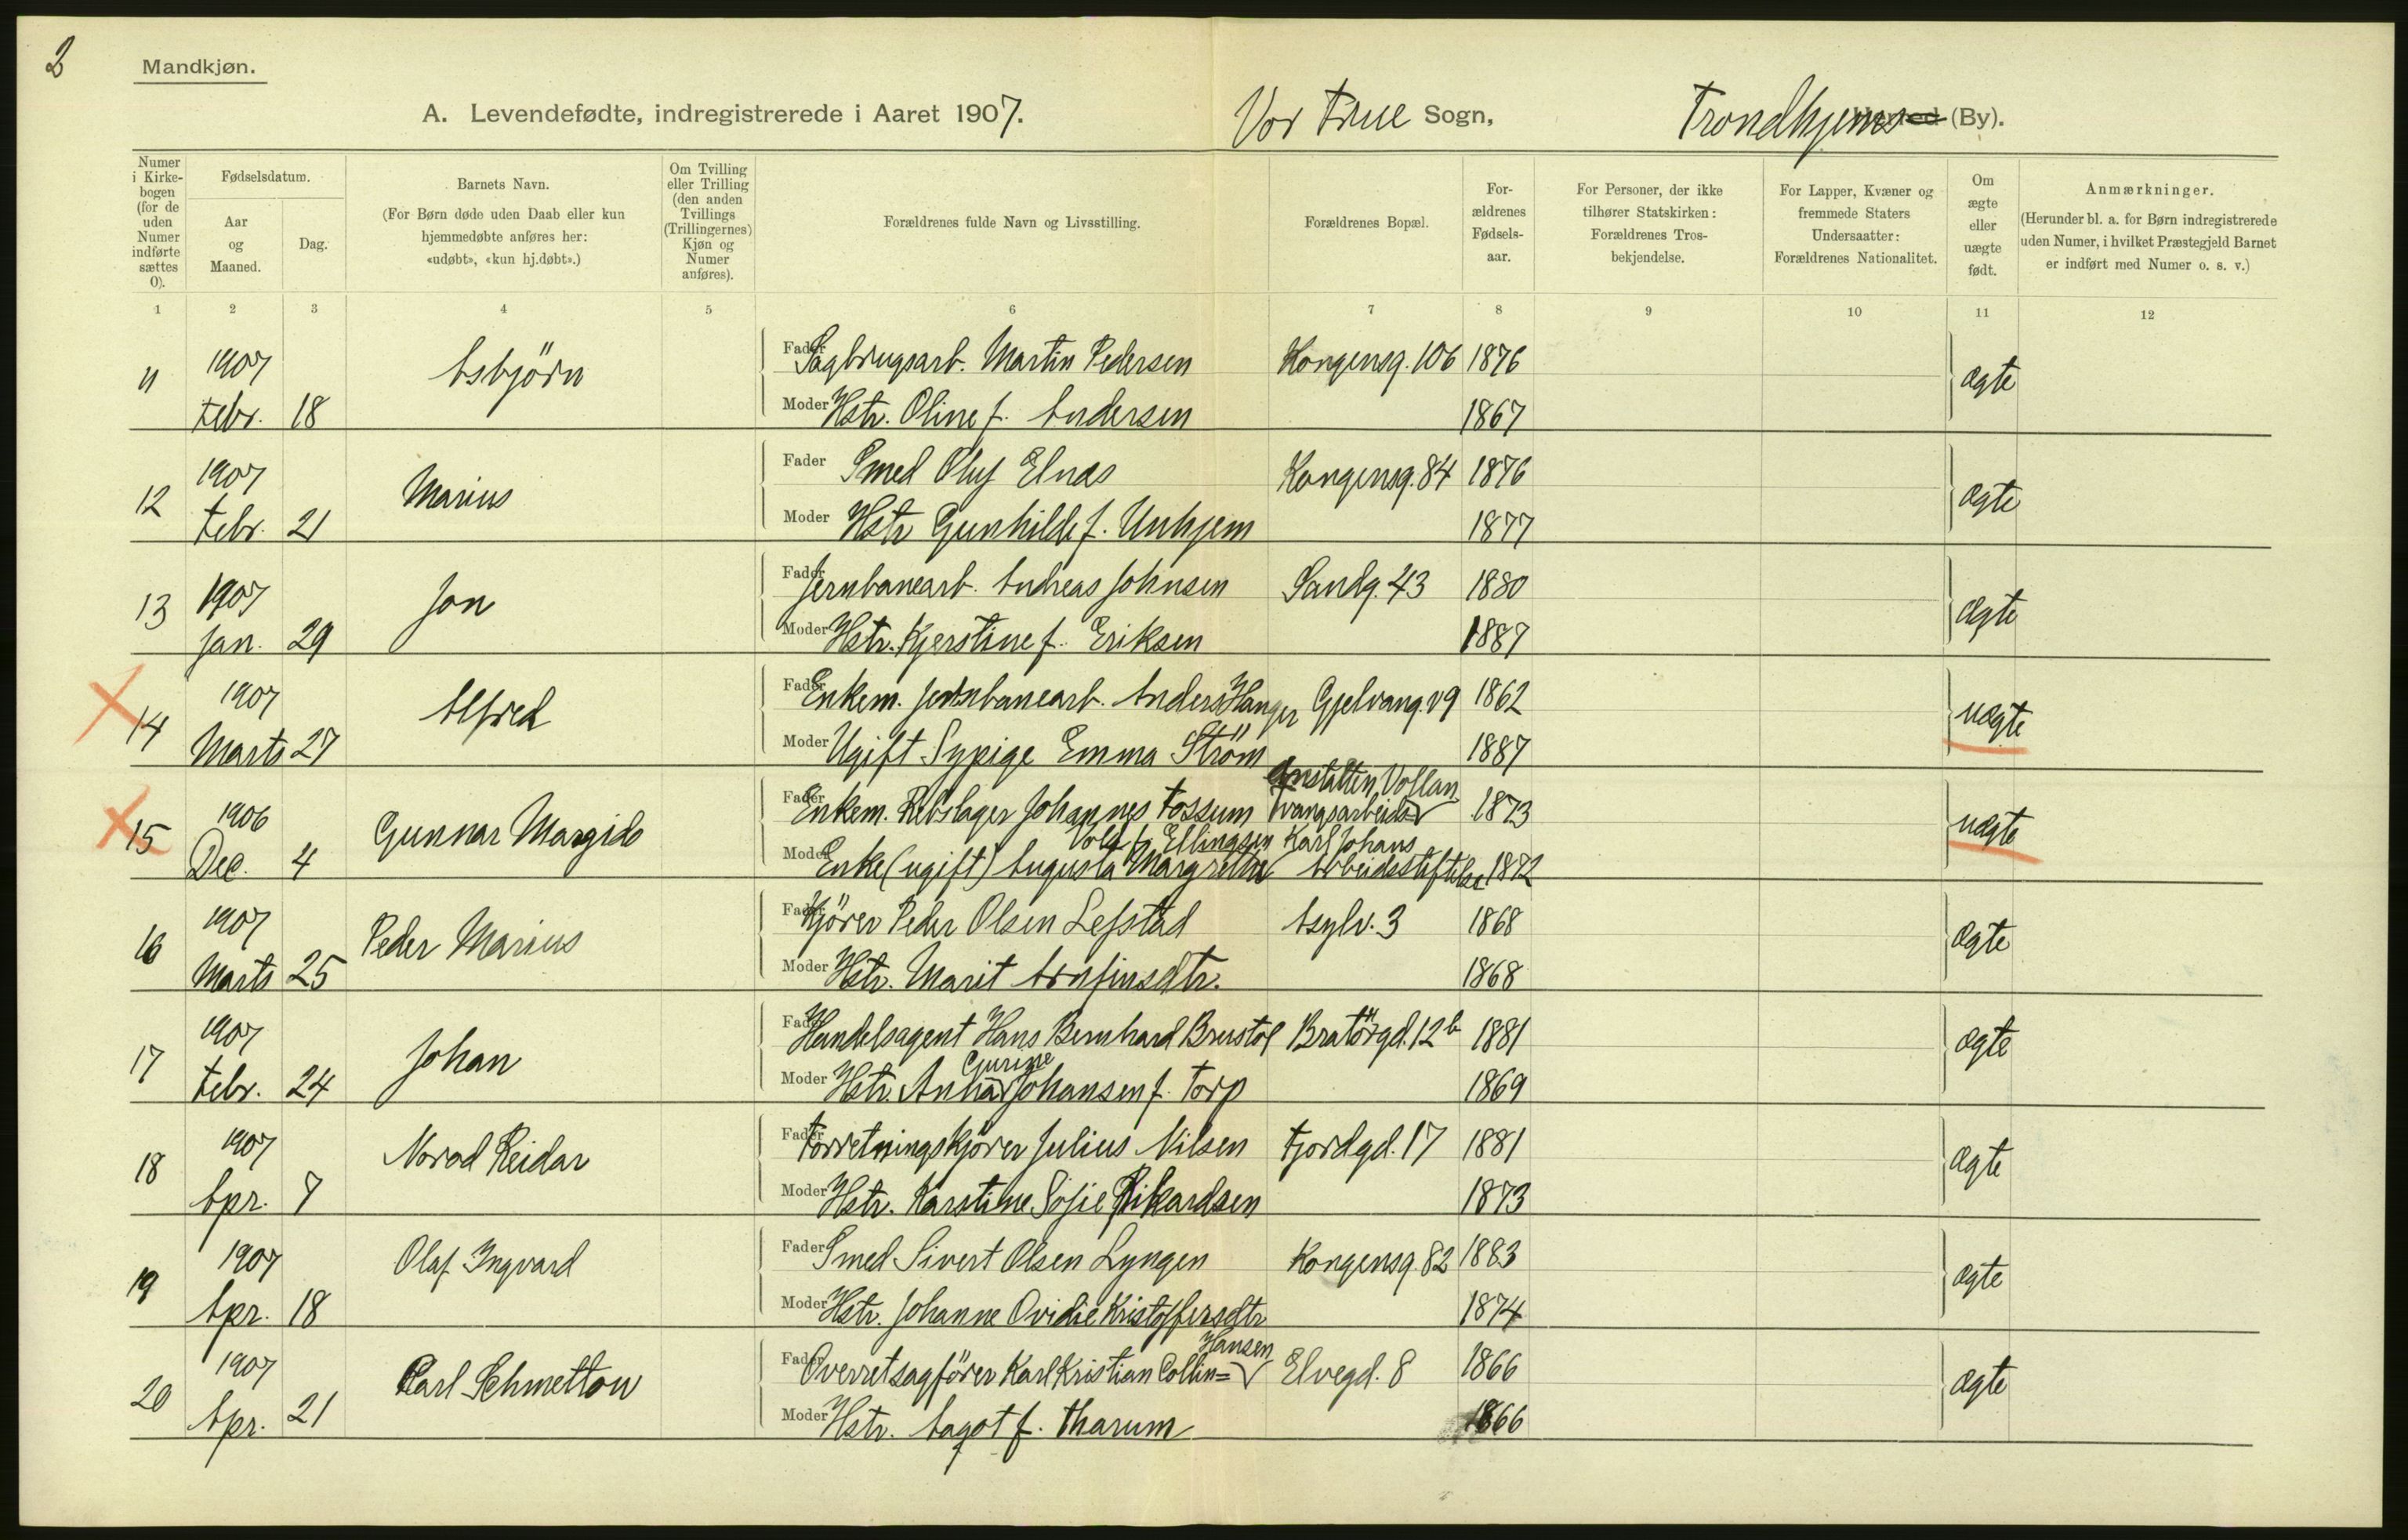 2
Mandkjøn.
A. Levendefødte, indregistrerede i Aaret 1907. Vor Frue Sogn, Trondhjems Herred (By).
Numer i Kirkebogen (for de uden Numer indførte sættes 0).
Fødselsdatum.
Aar og Maaned.
Dag.
Barnets Navn.
(For Børn døde uden Daab eller kun hjemmedøbte anføres her: «udøbt», «kun hj.døbt».)
Om Tvilling eller Trilling (den anden Tvillings (Trillingernes) Kjøn og Numer anføres).
Forældrenes fulde Navn og Livsstilling.
Forældrenes Bopæl.
Forældrenes Fødselsaar.
For Personer, der ikke tilhører Statskirken: Forældrenes Trosbekjendelse.
For Lapper, Kvæner og fremmede Staters Undersaatter: Forældrenes Nationalitet.
Om ægte eller uægte født.
Anmærkninger.
(Herunder bl. a. for Børn indregistrerede uden Numer, i hvilket Præstegjeld Barnet er indført med Numer o. s. v.)
1 2 3 4 5 6 7 8 9 10 11 12
11 1907 Asbjörn Fader Sagbrugsarb. Martin Pedersen Kongensg. 106 1876 ægte
Febr. 18 Moder Hstr. Oline f. Andersen 1867
12 1907 Marius Fader Smed Oluf Elnæs Kongensg. 84 1876 ægte
Febr. 21 Moder Hstr Gunhilde f. Unhjem 1877
13 1907 Jon Fader Jernbanearb. Andreas Johnsen Sandg. 43 1880 ægte
Jan. 29 Moder Hstr. Kjerstine f. Eriksen 1887
14 1907 Alfred Fader Enkem. Jernbanearb. Anders Hanger Gjelvang. 19 1862 uægte
Marts 27 Moder Ugift Sypige Emma Ström 1887
15 1906 Gunnar Margido Fader Enkem. Rebslager Johannes Fossum Tvangsarbeids anstalten, Vollan 1873 uægte
Dec. 4 Moder Enke (ugift) Augusta Margrethe Vold f. Ellingsen Karl Johans Arbeidsstiftelse 1872
16 1907 Peder Marius Fader Kjörer Peder Olsen Lefstad Asylv. 3 1868 ægte
Marts 25 Moder Hstr. Marit Arnfinsdtr. 1868
17 1907 Johan Fader Handelsagent Hans Bernhard Brustöl Bratörgd. 12b 1881 ægte
Febr. 24 Moder Hstr. Anna Gurine Johansen f. Torp 1869
18 1907 Norod Reidar Fader Forretningskjörer Julius Nilsen Fjordgd. 17 1881 ægte
Apr. 7 Moder Hstr. Karstine Sofie Rikardsen 1873
19 1907 Olaf Ingvard Fader Smed Sivert Olsen Lyngen Kongensg. 82 1883 ægte
Apr. 18 Moder Hstr. Johanne Ovidie Kristoffersdtr 1874
20 1907 Carl Schmettow Fader Overretsagförer Karl Kristian Collin=Hansen Elvegd. 8 1866 ægte
Apr. 21 Moder Hstr. Aagot f. Tharum 1866